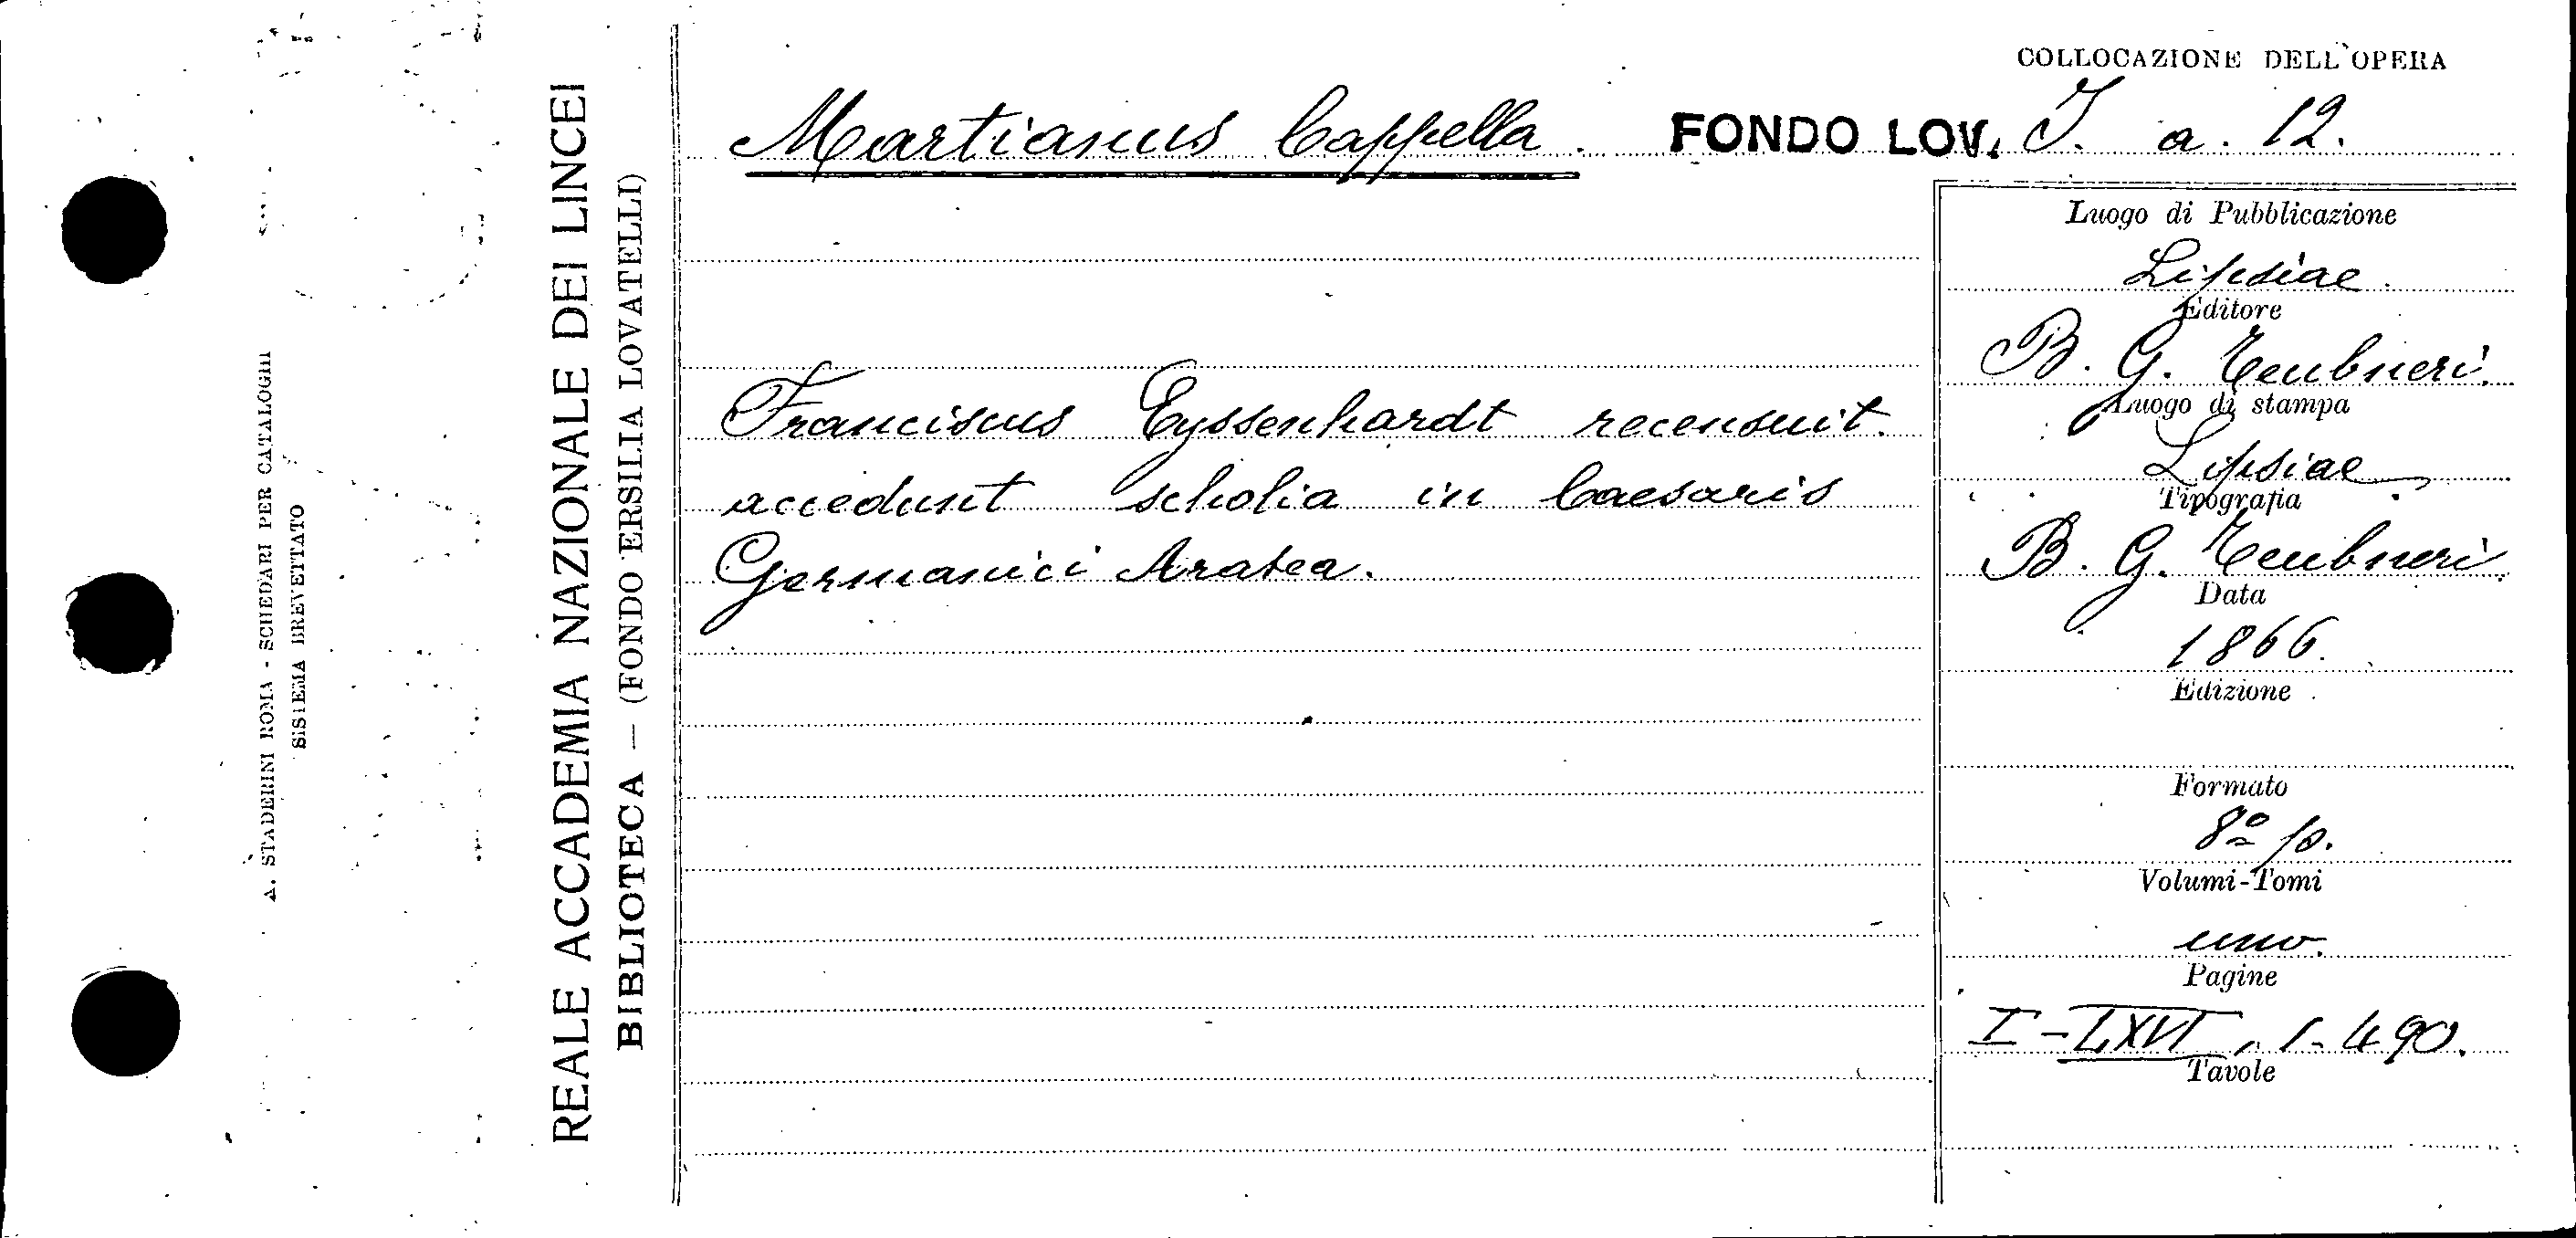 COLLOCAZIONE DELL'OPERA
Martianus Cappella. FONDO LOV. I. a. 12.
Franciscus Eyssenhardt recensuit.
accedunt scholia in Caesaris
Germanici Aratea.
Luogo di Pubblicazione
Lipsiae.
Editore
B. G. Teubneri.
Luogo di stampa
Lipsiae
Tipografia
B. G. Teubneri.
Data
1866.
Edizione
Formato
8º p.
Volumi-Tomi
uno.
Pagine
I-LXVI, 1-490.
Tavole
REALE ACCADEMIA NAZIONALE DEI LINCEI
BIBLIOTECA — (FONDO ERSILIA LOVATELLI)
A. STADERINI ROMA - SCHEDARI PER CATALOGHI
SISTEMA BREVETTATO